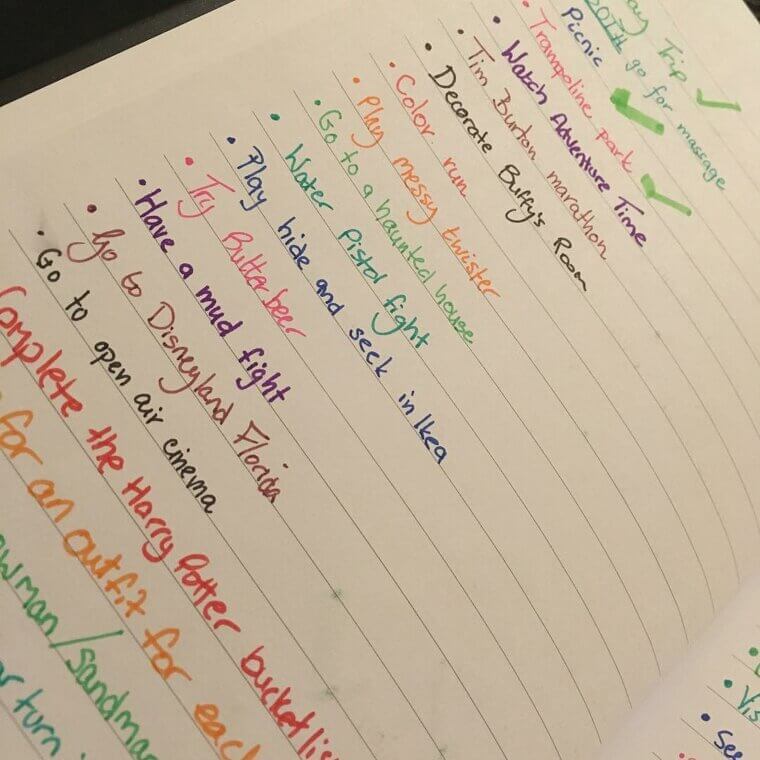 Trip ✓
go for massage
Picnic ✓
• Trampoline park ✓
• Watch Adventure Time
• Tim Burton marathon
• Decorate Buffy's Room
• Color run
• Play messy twister
• Go to a haunted house
• Water Pistol fight
• Play hide and seek in Ikea
• Try Butterbeer
• Have a mud fight
• Go to Disneyland Florida
• Go to open air cinema
Complete the Harry Potter bucket
for an outfit for each
/sandman
turn